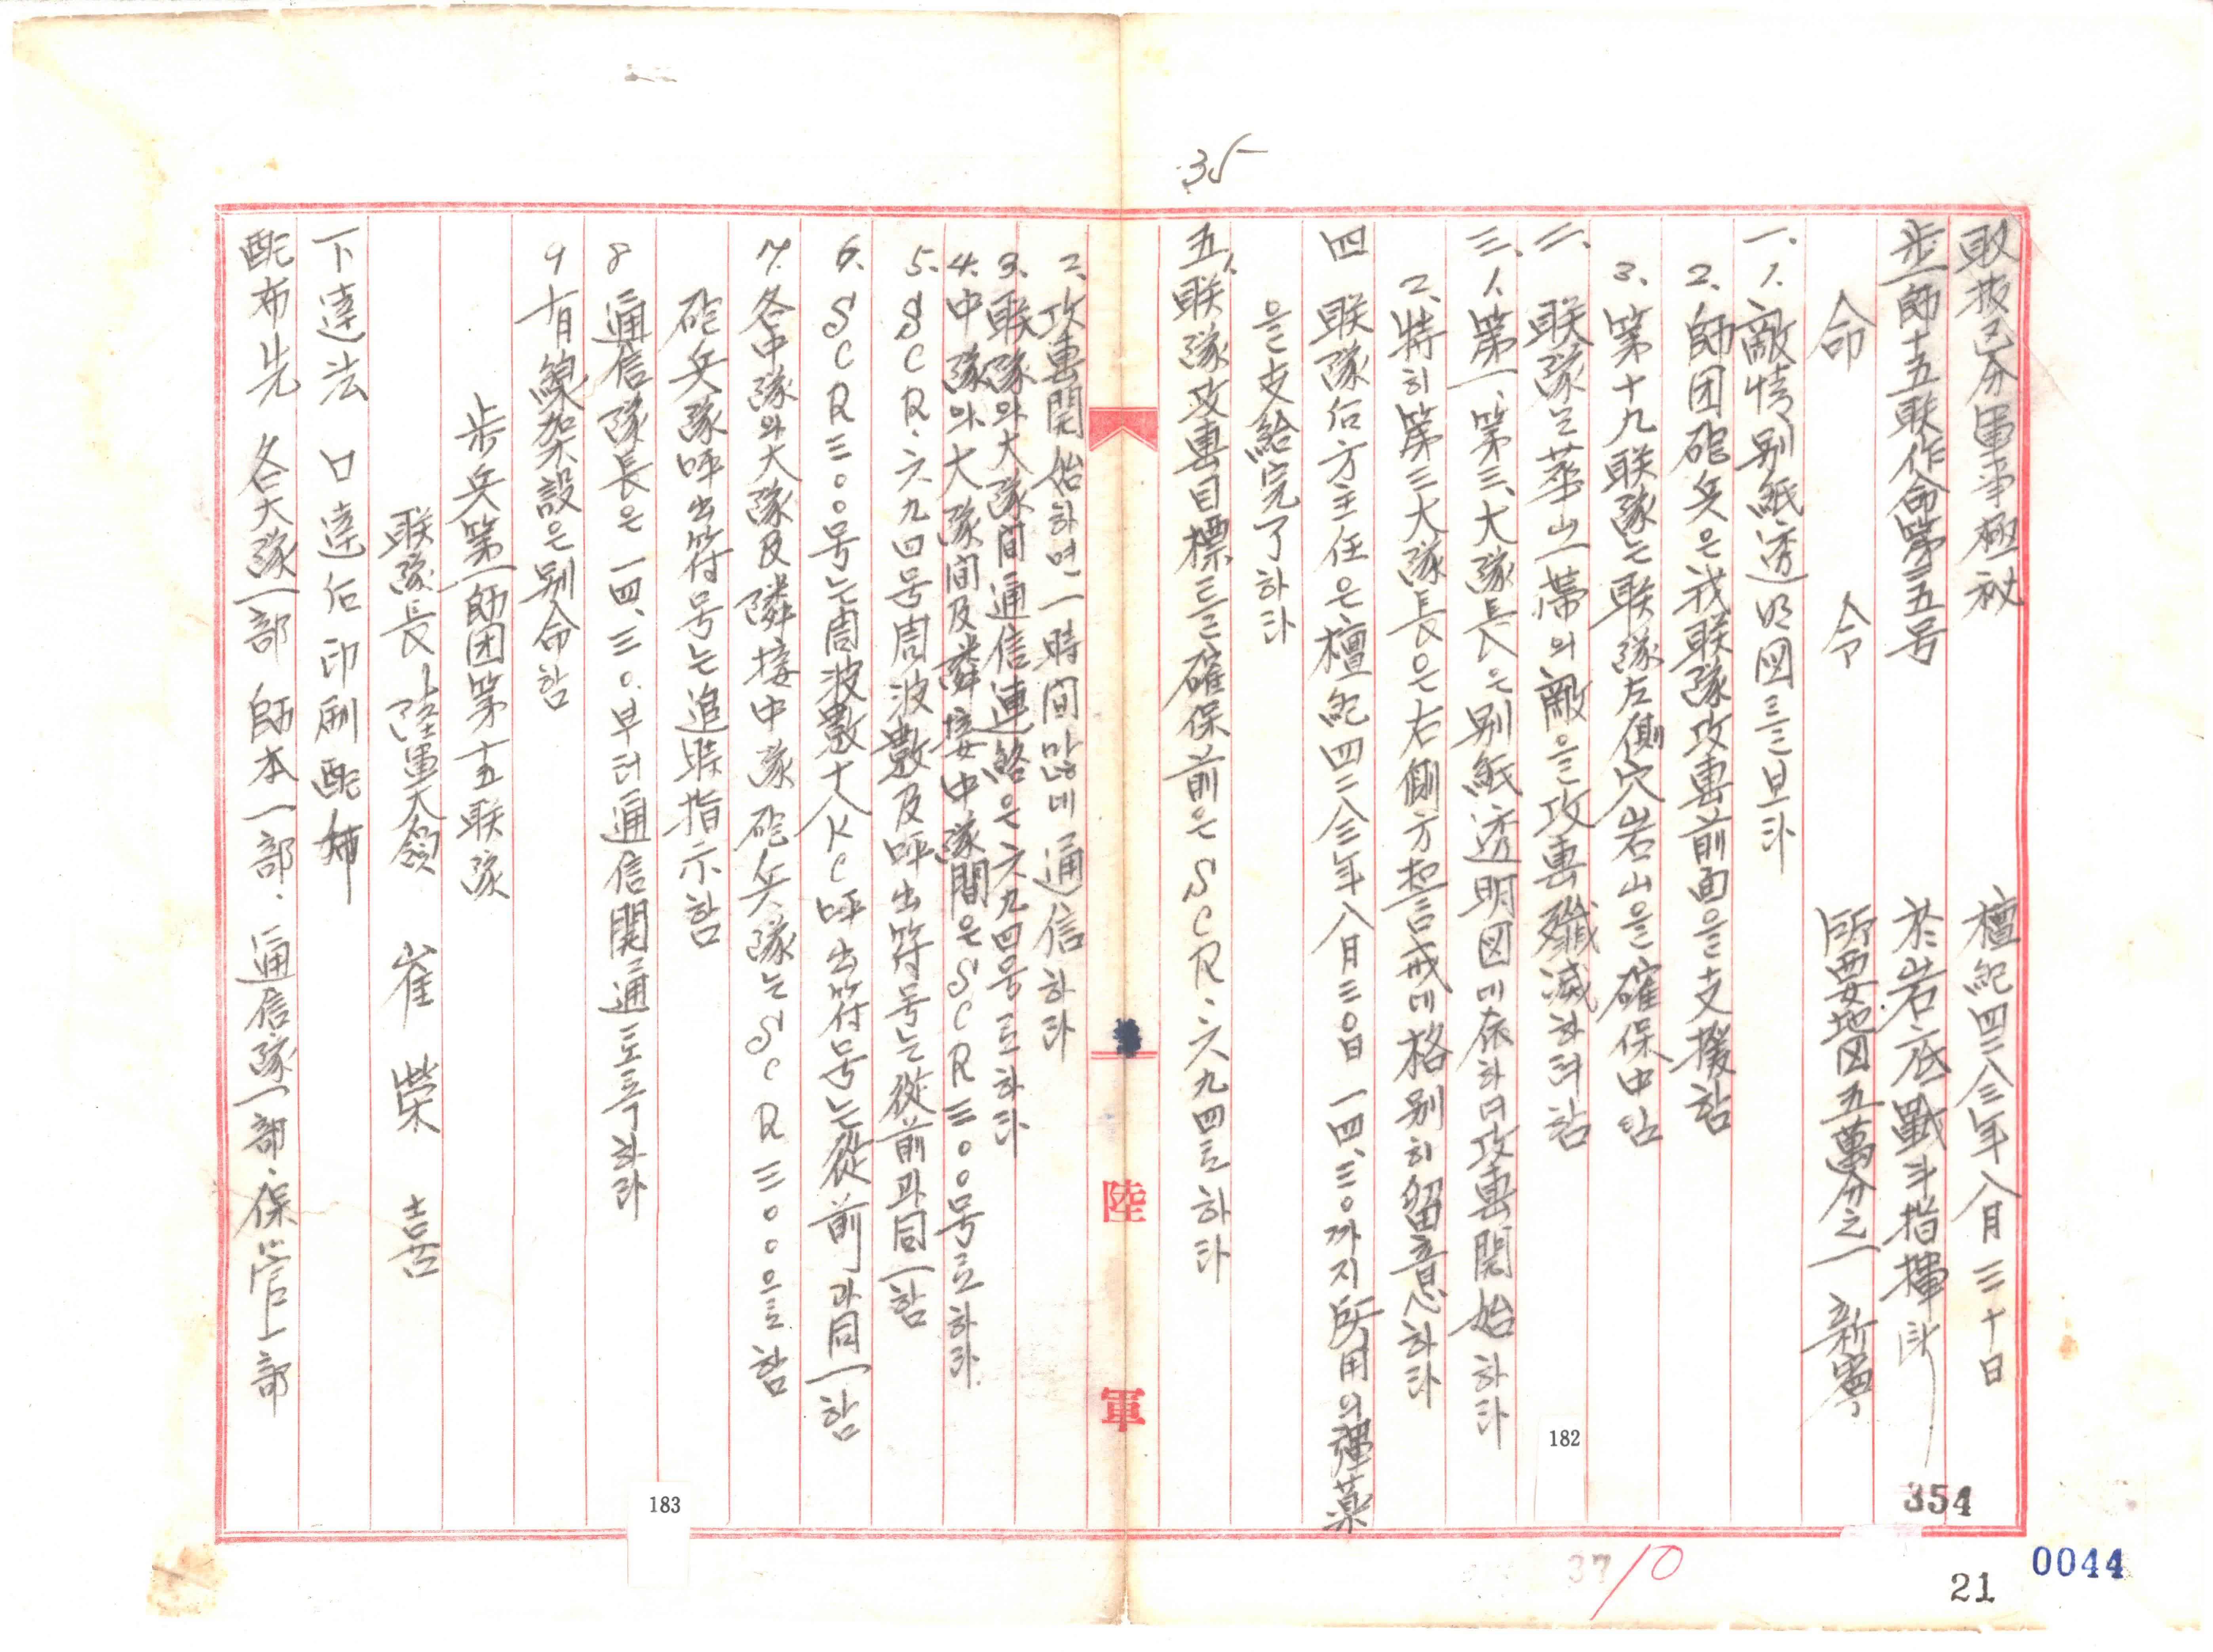 35
取扱己分軍事極秘 檀紀四二八三年八月三十日
步一師十五联作命第三五号 於岩底戰斗指揮所
命 令 所要地図五萬分之一 新寧
一. 1. 敵情別紙透明図를보라
2. 師団砲兵은我联隊攻擊前面을支援함
3. 第十九联隊는联隊左側穴岩山을確保中임
二、 联隊는華山一帶의敵을攻擊殲滅하려함
三、 1、第一、第三、大隊長은別紙透明図에依하여攻擊開始하라
2、特히第三大隊長은右側方警戒에格別히留意하라
四 联隊后方主任은檀紀四二八三年八月三〇日 一四、三〇까지所用의彈薬
을支給完了하라
五、 1. 联隊攻擊目標를確保前은SCR·六九四로하라
2、攻擊開始하면一時間만에通信하라
3、联隊와大隊間通信連絡은六九四号로하라
4. 中隊와大隊間及隣接中隊間은SCR三〇〇号로하라.
5. SCR·六九四号周波數及呼出符号는從前과同一함
6. SCR三〇〇号는周波數十八KC呼出符号는從前과同一함
7. 各中隊와大隊及隣接中隊砲兵隊는SCR三〇〇으로함
砲兵隊呼出符号는追時指示함
8 通信隊長은一四、三〇.부터通信開通도록하라
9 有線架設은別命함
步兵第一師団第十五联隊
联隊長 陸軍大領 崔榮喜
下達法 口達后印刷配布
配布先 各大隊一部 師本一部. 通信隊一部. 保管一部
陸軍
182
183
354
37/0
21
0044